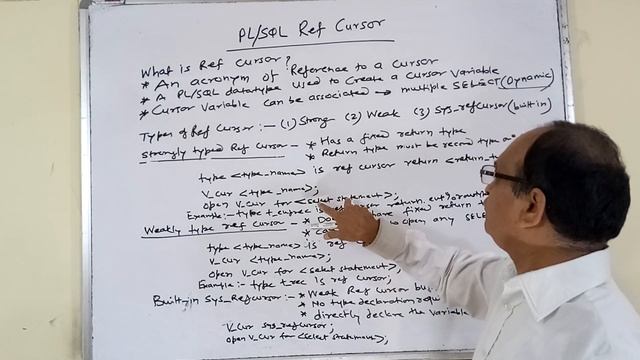 PL/SQL Ref Cursor
What is Ref Cursor?
* An acronym of Reference to a Cursor
* A PL/SQL datatype used to create a cursor variable
* Cursor Variable can be associated → multiple SELECT (Dynamic)
Types of Ref Cursor :- (1) Strong (2) Weak (3) Sys_refcursor (built-in)
Strongly typed Ref Cursor - * Has a fixed return type
* Return type must be record type
type <type_name> is ref cursor return
V_cur <type_name>;
open V_cur for <select statement>;
Example:- type return
Weakly type ref cursor - * have fixed return
* open any
type <type_name> is ref
V_cur <type_name>;
open V_cur for <select statement>;
Example:- type t_rec is ref cursor;
Built-in Sys_Refcursor :- * Weak Ref Cursor
* No type declaration
* directly declare the variable
V_cur sys_refcursor;
open V_cur for <select statement>;